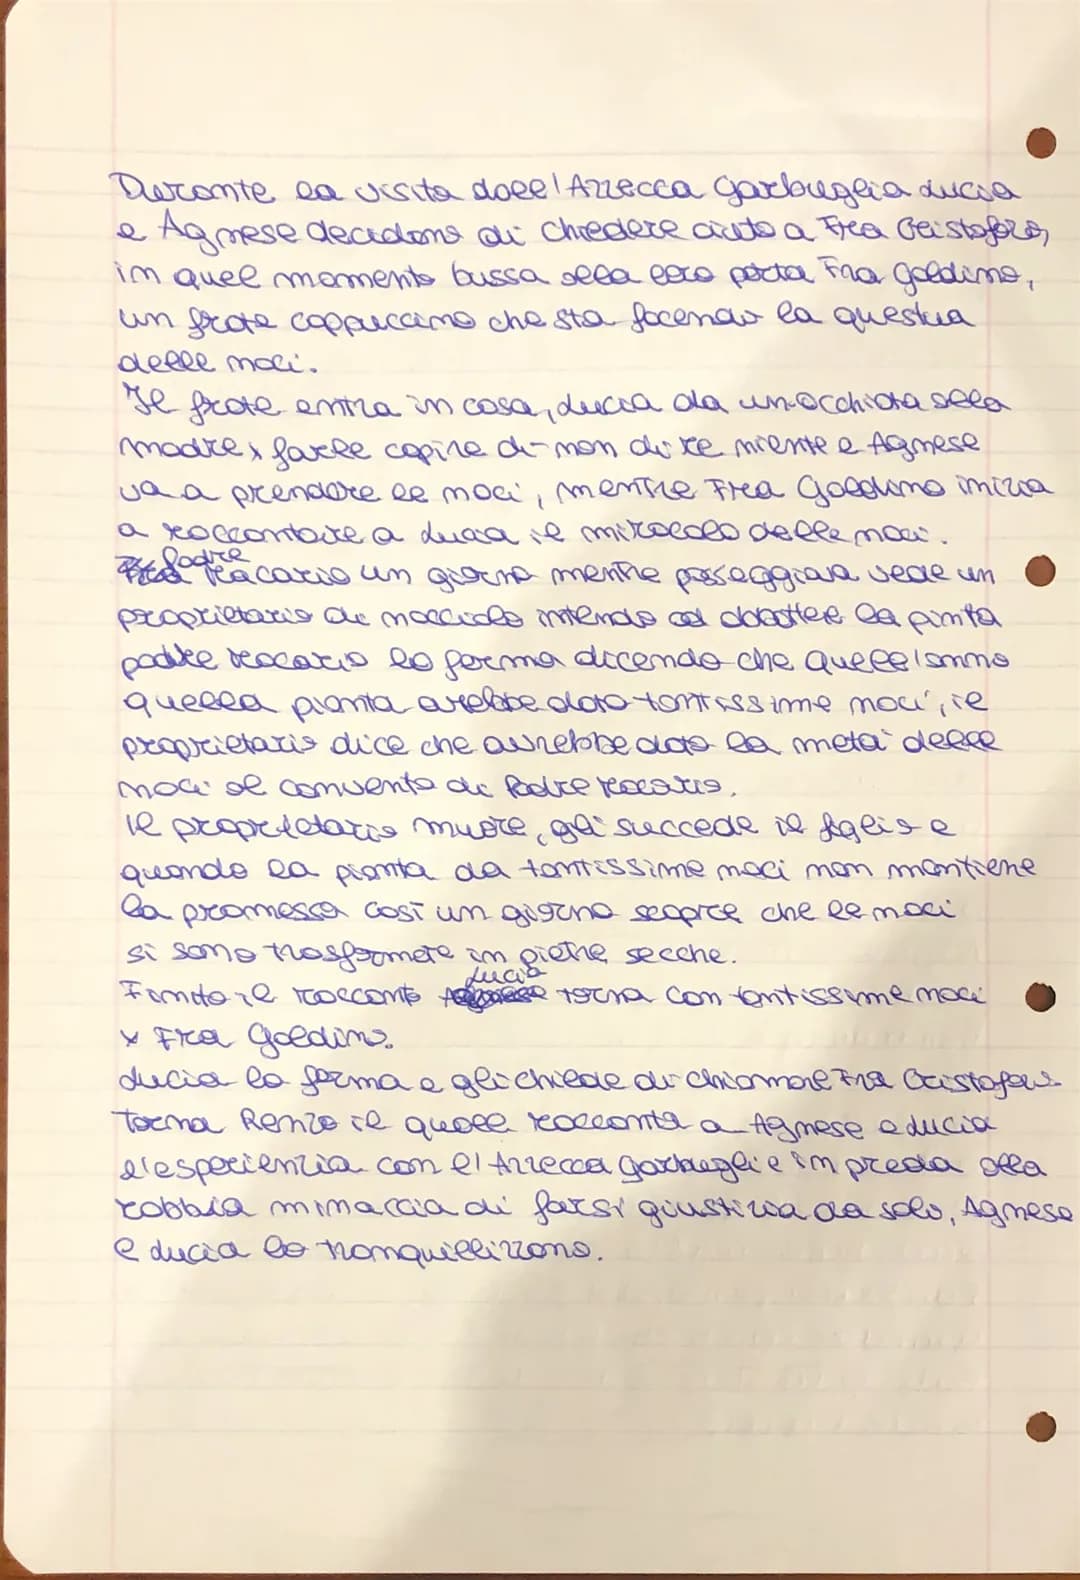 Durante la visita dall'Azzecca Garbuglia Lucia
e Agnese decidono di chiedere aiuto a Fra Cristoforo,
in quel momento bussa alla loro porta Fra Galdino,
un frate cappuccino che sta facendo la questua
delle noci.
Il frate entra in casa, Lucia da un'occhiata alla
madre x farle capire di non dire niente e Agnese
va a prendere le noci, mentre Fra Galdino inizia
a raccontare a Lucia il miracolo delle noci.
Padre Macario un giorno mentre passeggiava vede un
proprietario di nocciolo intendo ad abbattere la pinta
padre Macario lo ferma dicendo che quell'anno
quella pianta avrebbe dato tantissime noci, il
proprietario dice che avrebbe dato la metà delle
noci al convento di Padre Macario.
Il proprietario muore, gli succede il figlio e
quando la pianta da tantissime noci non mantiene
la promessa così un giorno scopre che le noci
si sono trasformete in pietre secche.
Finito il racconto Lucia torna con tantissime noci
x Fra Galdino.
Lucia lo ferma e gli chiede di chiamare Fra Cristoforo
Torna Renzo il quale racconta a Agnese e Lucia
l'esperienzia con l'Azzecca garbugli e in preda alla
rabbia minaccia di farsi giustizia da solo, Agnese
e Lucia lo tranquillizzano.